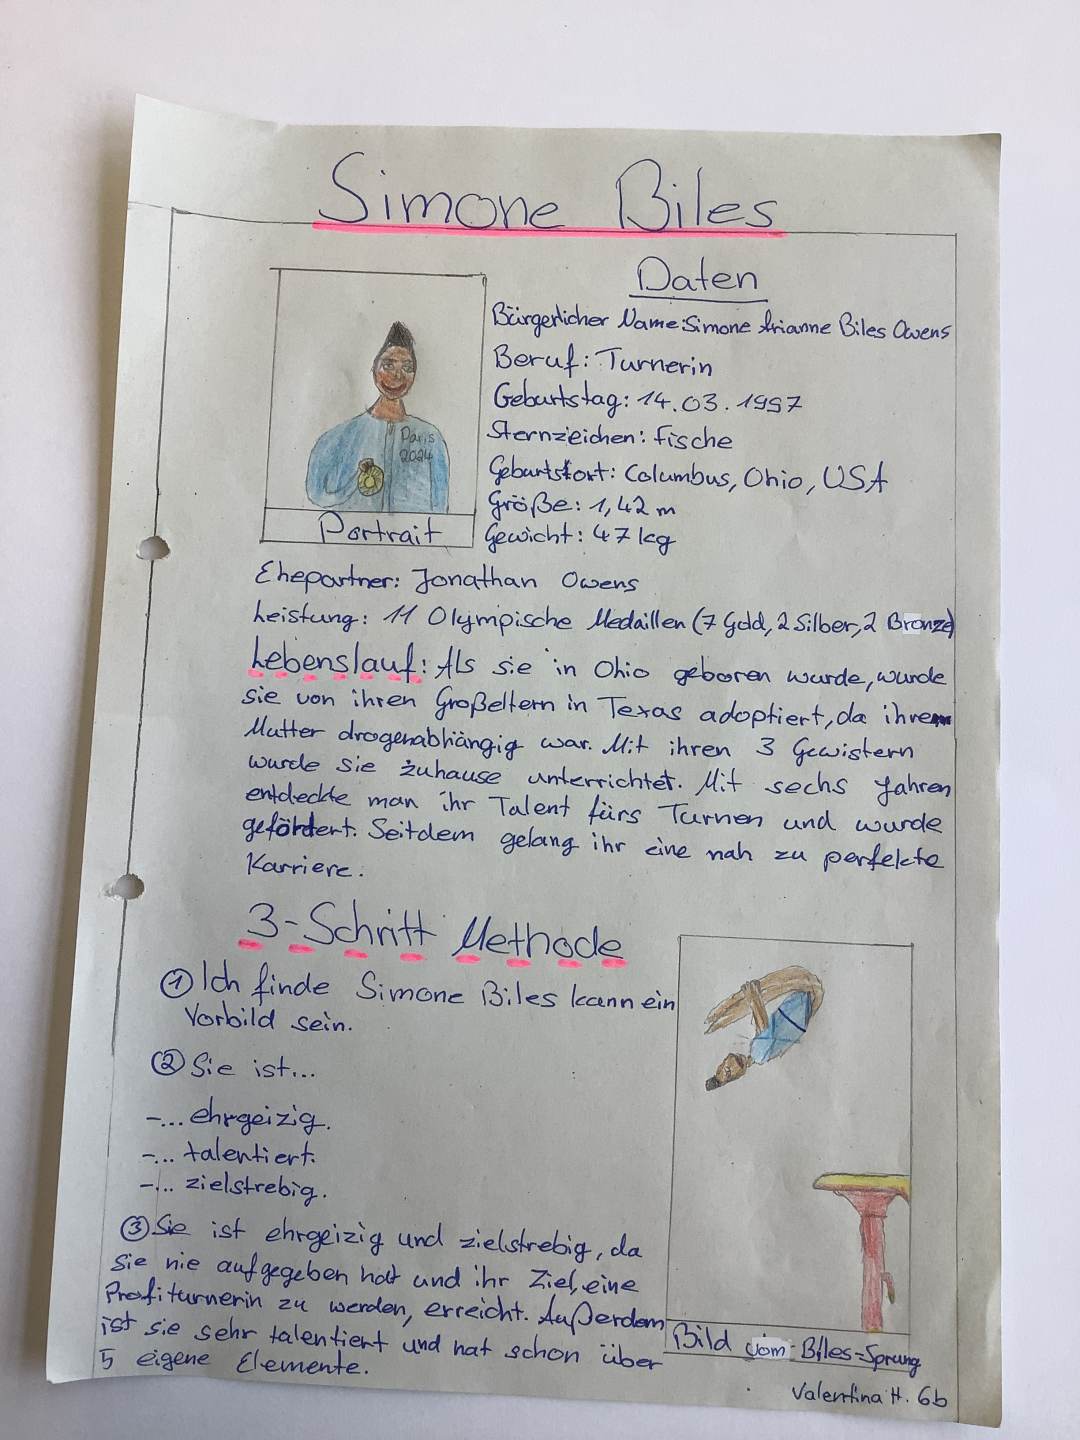 Simone Biles
Daten
Bürgerlicher Name: Simone Arianne Biles Owens
Beruf: Turnerin
Geburtstag: 14.03.1997
Sternzeichen: Fische
Geburtsort: Columbus, Ohio, USA
Größe: 1,42 m
Gewicht: 47 kg
Paris
2024
Portrait
Ehepartner: Jonathan Owens
Leistung: 11 Olympische Medaillen (7 Gold, 2 Silber, 2 Bronze)
Lebenslauf: Als sie in Ohio geboren wurde, wurde
sie von ihren Großeltern in Texas adoptiert, da ihre
Mutter drogenabhängig war. Mit ihren 3 Gewistern
wurde sie zuhause unterrichtet. Mit sechs Jahren
entdeckte man ihr Talent fürs Turnen und wurde
gefördert. Seitdem gelang ihr eine nah zu perfekte
Karriere.
3-Schritt Methode
① Ich finde Simone Biles kann ein
Vorbild sein.
② Sie ist...
-... ehrgeizig.
-... talentiert.
-... zielstrebig.
③ Sie ist ehrgeizig und zielstrebig, da
sie nie aufgegeben hat und ihr Ziel, eine
Profiturnerin zu werden, erreicht. Außerdem
ist sie sehr talentiert und hat schon über
5 eigene Elemente.
Bild vom Biles-Sprung
Valentina H. 6b